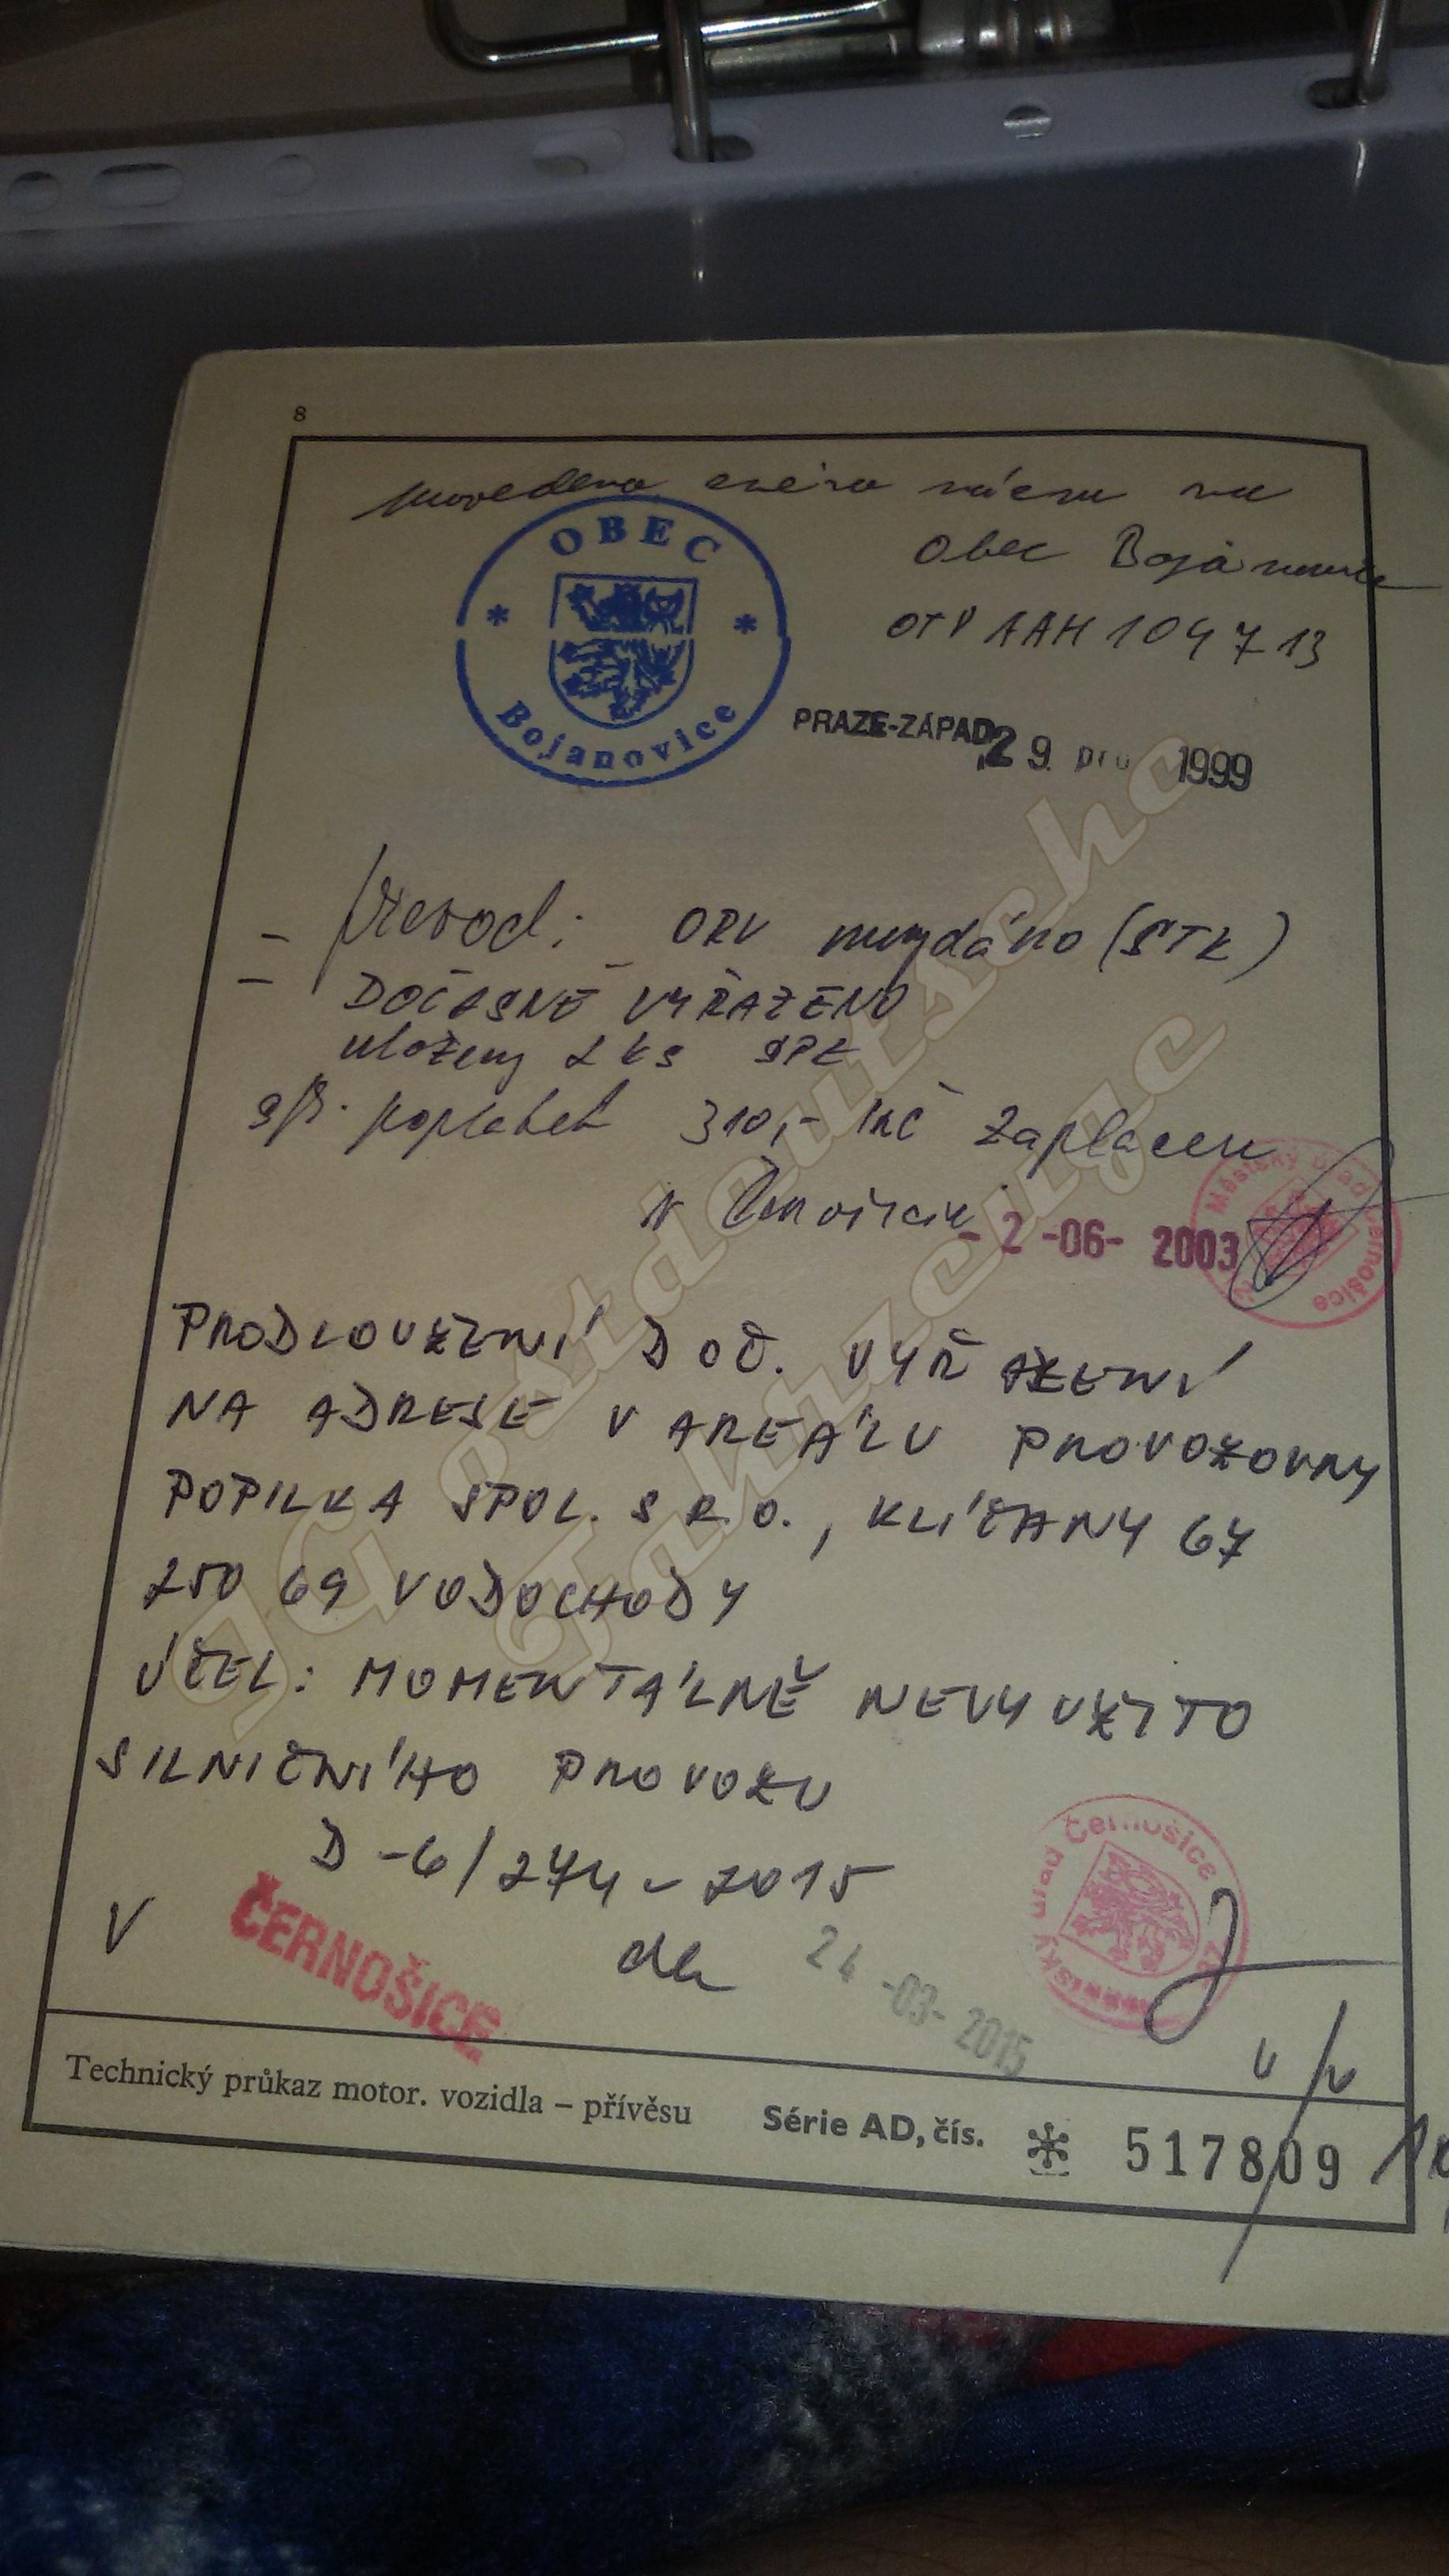 8
provedena změna názvu na
Obec Bojanovice
OTP AAH 104713
OBEC
* *
Bojanovice
PRAZE-ZÁPAD 29. 1999
- Převod: ORV nevydáno (STK)
- DOČASNĚ VYŘAZENO
uloženy 2 ks SPZ
spr. poplatek 310,- Kč zaplacen
- 2 -06- 2003
Městský úřad Černošice
PRODLOUŽENÍ DOČ. VYŘAZENÍ
NA ADRESE V AREÁLU PROVOZOVNY
POPILKA SPOL. S R.O., KLÍČANY 67
250 69 VODOCHODY
ÚČEL: MOMENTÁLNĚ NEVYUŽITO
SILNIČNÍHO PROVOZU
D-6/274-2015
V ČERNOŠICE dn 24 -03- 2015
Městský úřad Černošice
Technický průkaz motor. vozidla – přívěsu Série AD, čís. 517809
IG ostdeutsche
Fahrzeuge